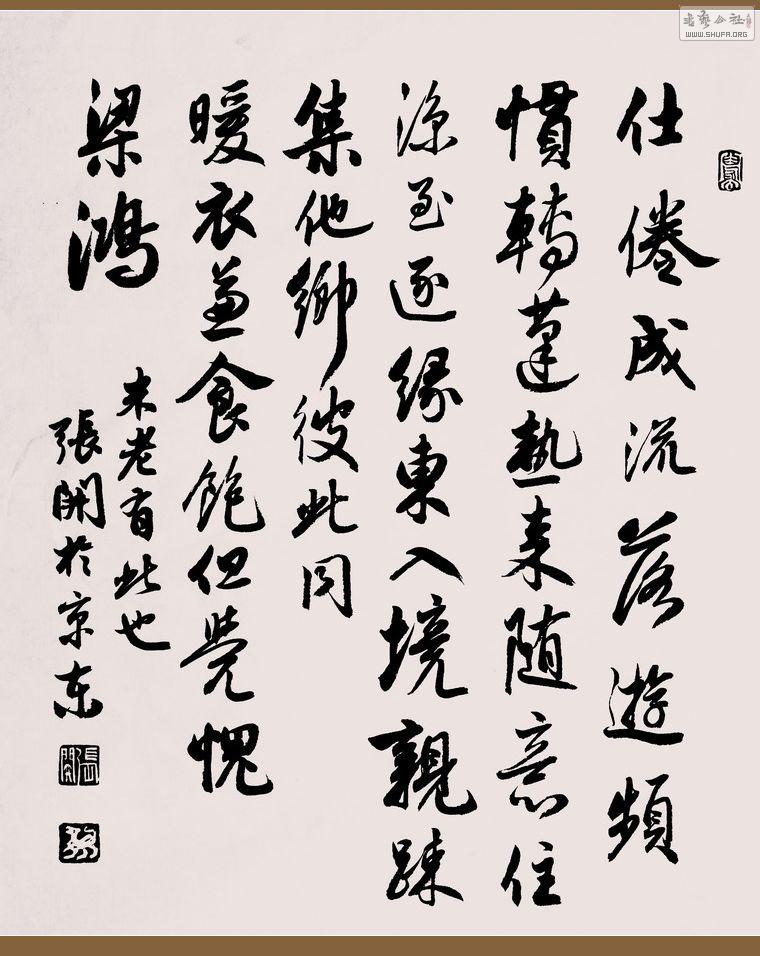 書藝公社
WWW.SHUFA.ORG
仕倦成流落遊頻
慣轉蓬熱来随意住
涼至逐緣東入境親踈
集他鄉彼此同
暖衣兼食飽但覺愧
梁鴻
米老有此也
張開於京东
張開